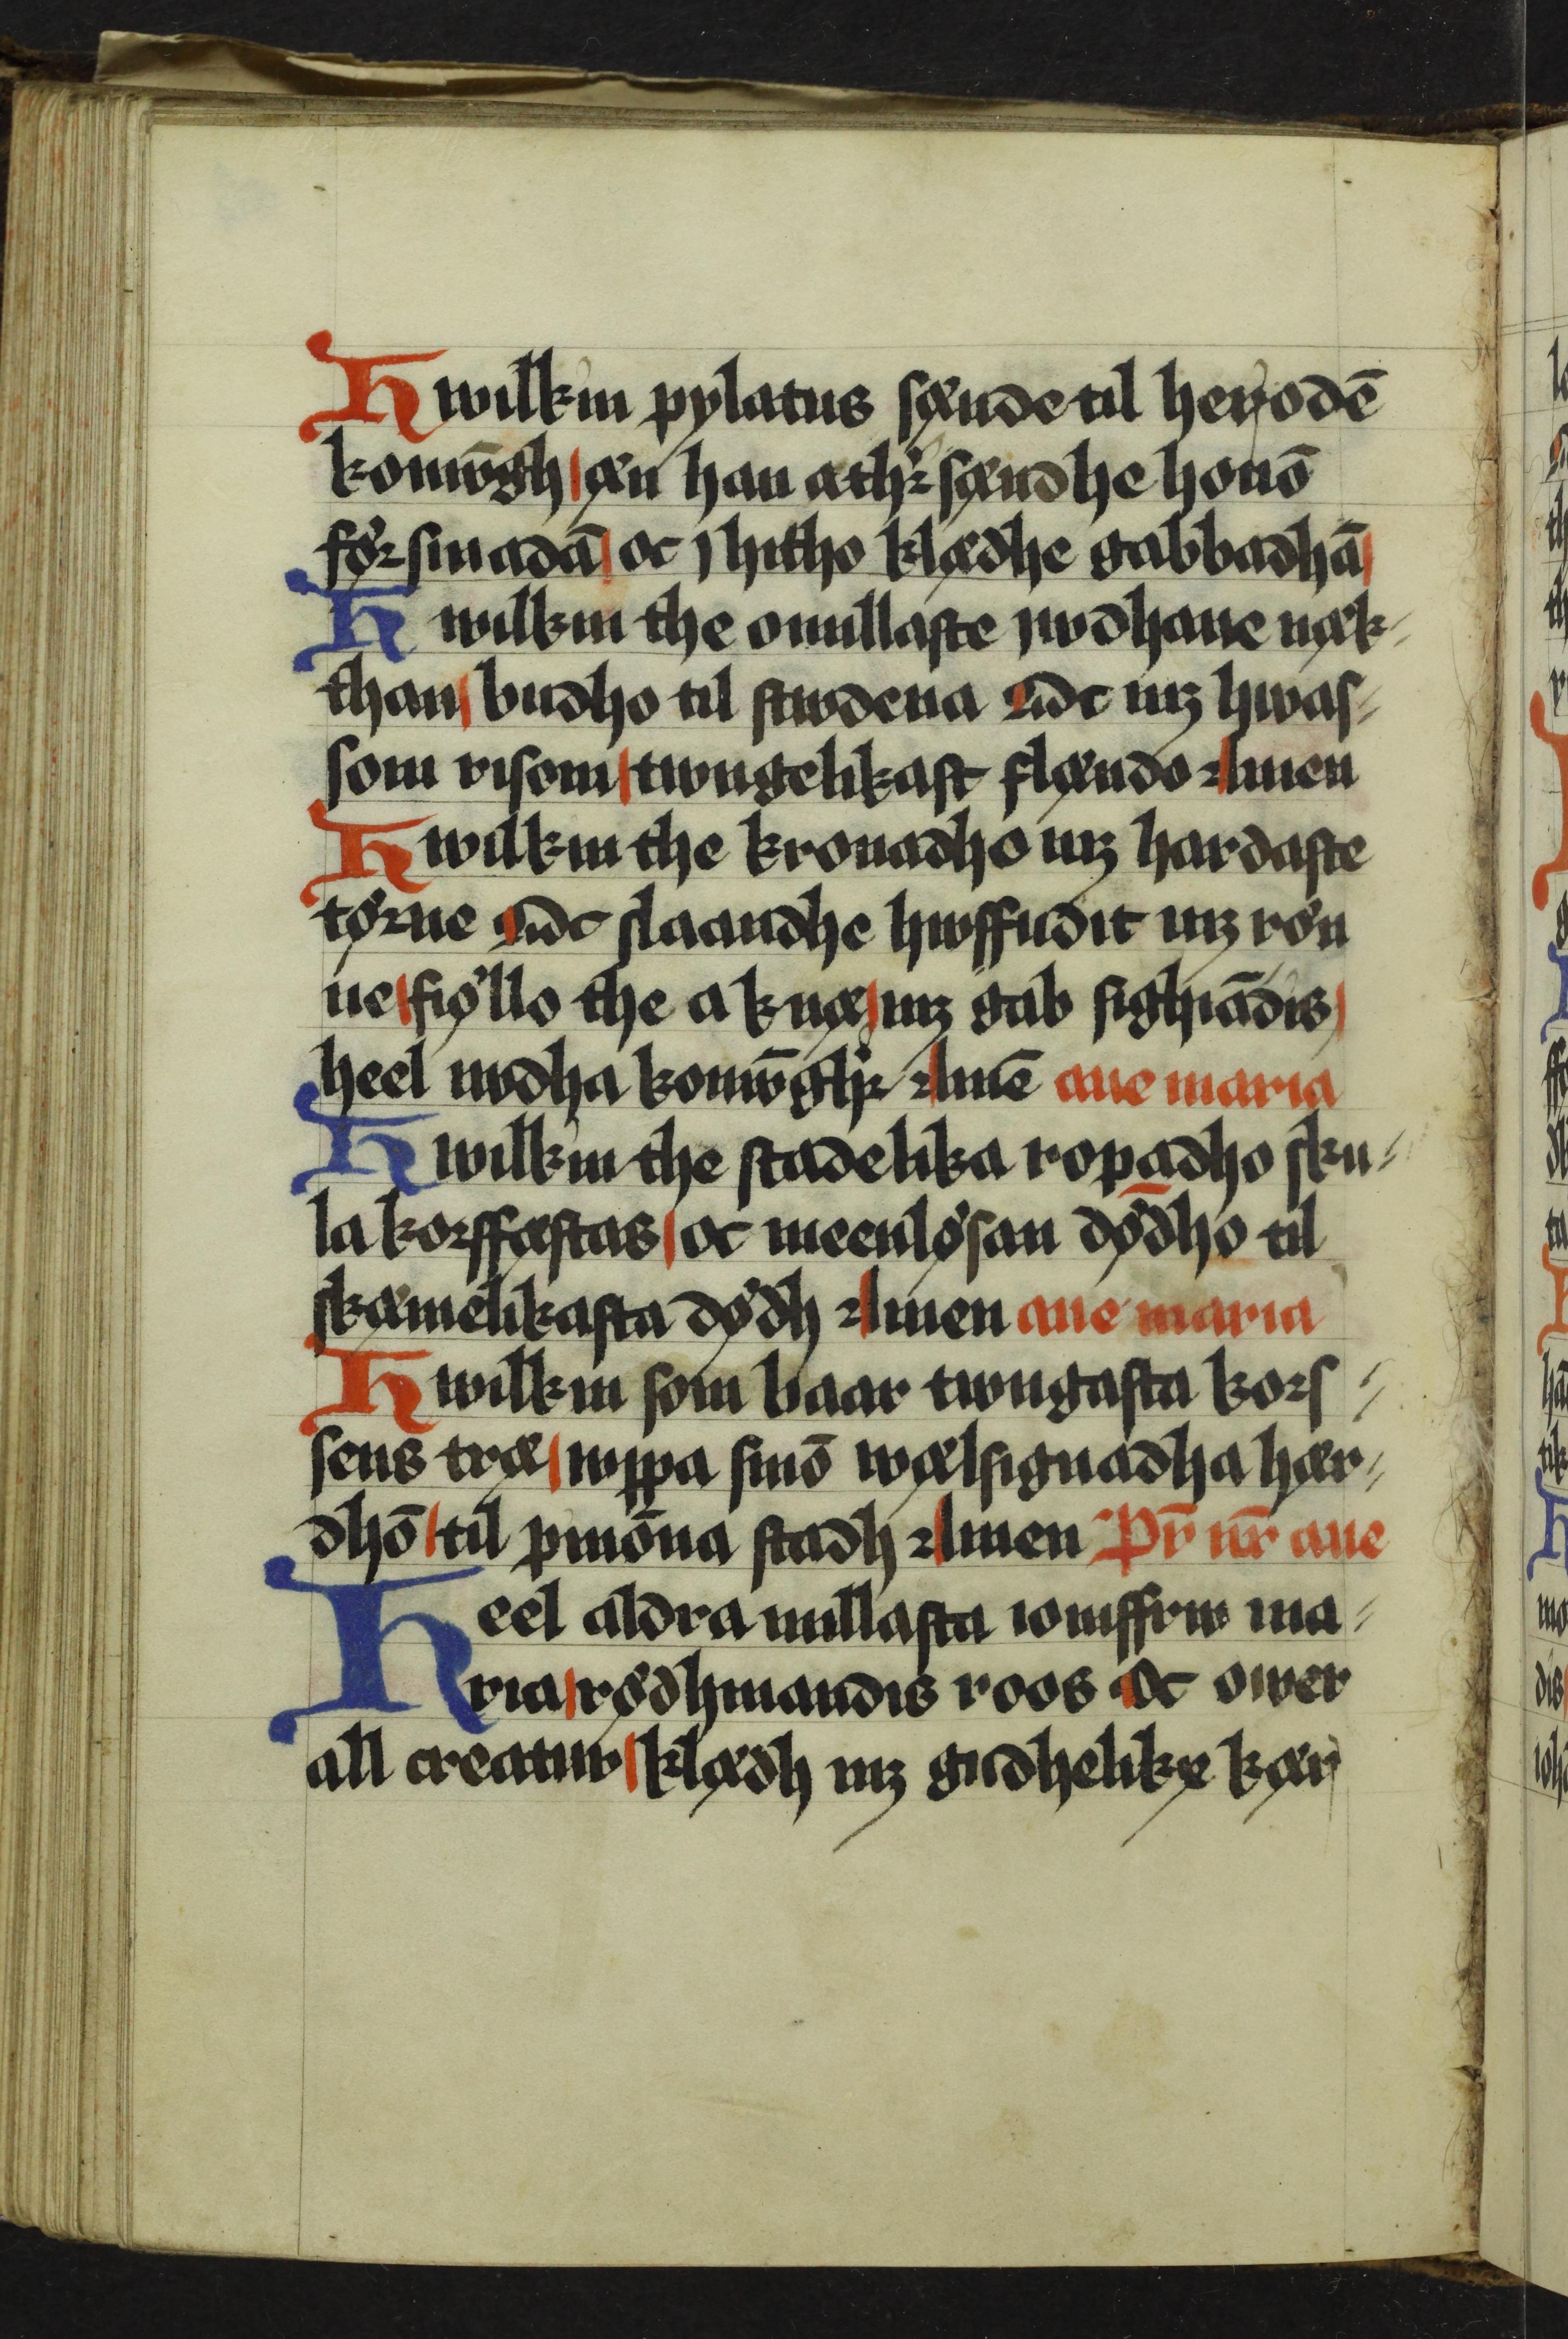 Hwilkin pylatus sænde til herodē
konw̄gh | æn han athr̛ sændhe honō
førsmadā | oc j hitho klædhe gabbadhā |
Hwilkin the omillaste jwdhane næk-
than | budho til stwdena Oc mȝ hwas-
som risom | twngelikast flændo Amen
Hwilkin the kronadho mȝ hardaste
tørne Oc slaandhe hwffudit mȝ røn
ne | fiøllo the a knæ | mȝ gab sighiādis |
heel iwdha konw̄ghr̛ Amē aue maria
Hwilkin the stadelika ropadho sku-
la korffæstas | oc meenløsan dø̄dho til
skæmelikasta dødh Amen aue maria
Hwilkin som baar twngasta kors-
sens træ | wppa sinō wælsignadha hær-
dhō | til pinōna stadh Amen Pr̄ nr̄ aue
Heel aldra millasta iomffrw ma-
ria | rødhmandis roos Oc ower
all creatur | klædh mȝ gudhelike kær